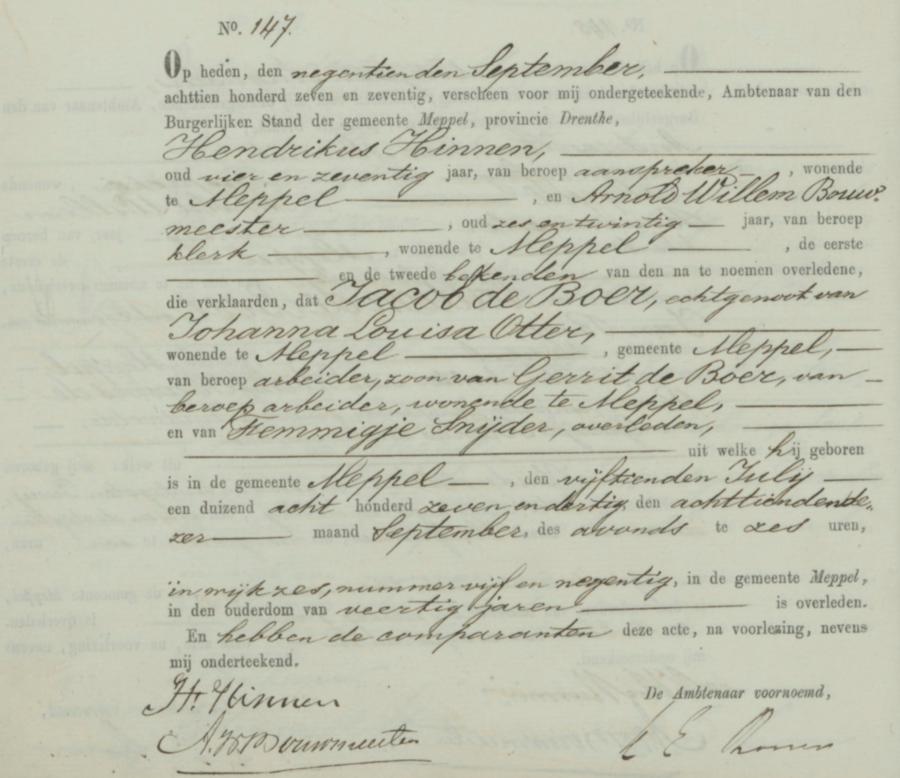 No. 147.
Op heden, den negentienden September,
achttien honderd zeven en zeventig, verscheen voor mij ondergeteekende, Ambtenaar van den
Burgerlijken Stand der gemeente Meppel, provincie Drenthe,
Hendrikus Hinnen,
oud vier en zeventig jaar, van beroep aanspreker, wonende
te Meppel, en Arnold Willem Bouw-
meester, oud zes en twintig jaar, van beroep
klerk, wonende te Meppel, de eerste
en de tweede bekenden van den na te noemen overledene,
die verklaarden, dat Jacob de Boer, echtgenoot van
Johanna Louisa Otter,
wonende te Meppel, gemeente Meppel,
van beroep arbeider, zoon van Gerrit de Boer, van
beroep arbeider, wonende te Meppel,
en van Femmigje Snijder, overleden,
uit welke hij geboren
is in de gemeente Meppel, den vijftienden Julij
een duizend acht honderd zeven en dertig, den achttienden de-
zer maand September, des avonds te zes uren,
in wijk zes, nummer vijf en negentig, in de gemeente Meppel,
in den ouderdom van veertig jaren is overleden.
En hebben de comparanten deze acte, na voorlezing, nevens
mij onderteekend.
Hs. Hinnen
De Ambtenaar voornoemd,
A. W. Bouwmeester